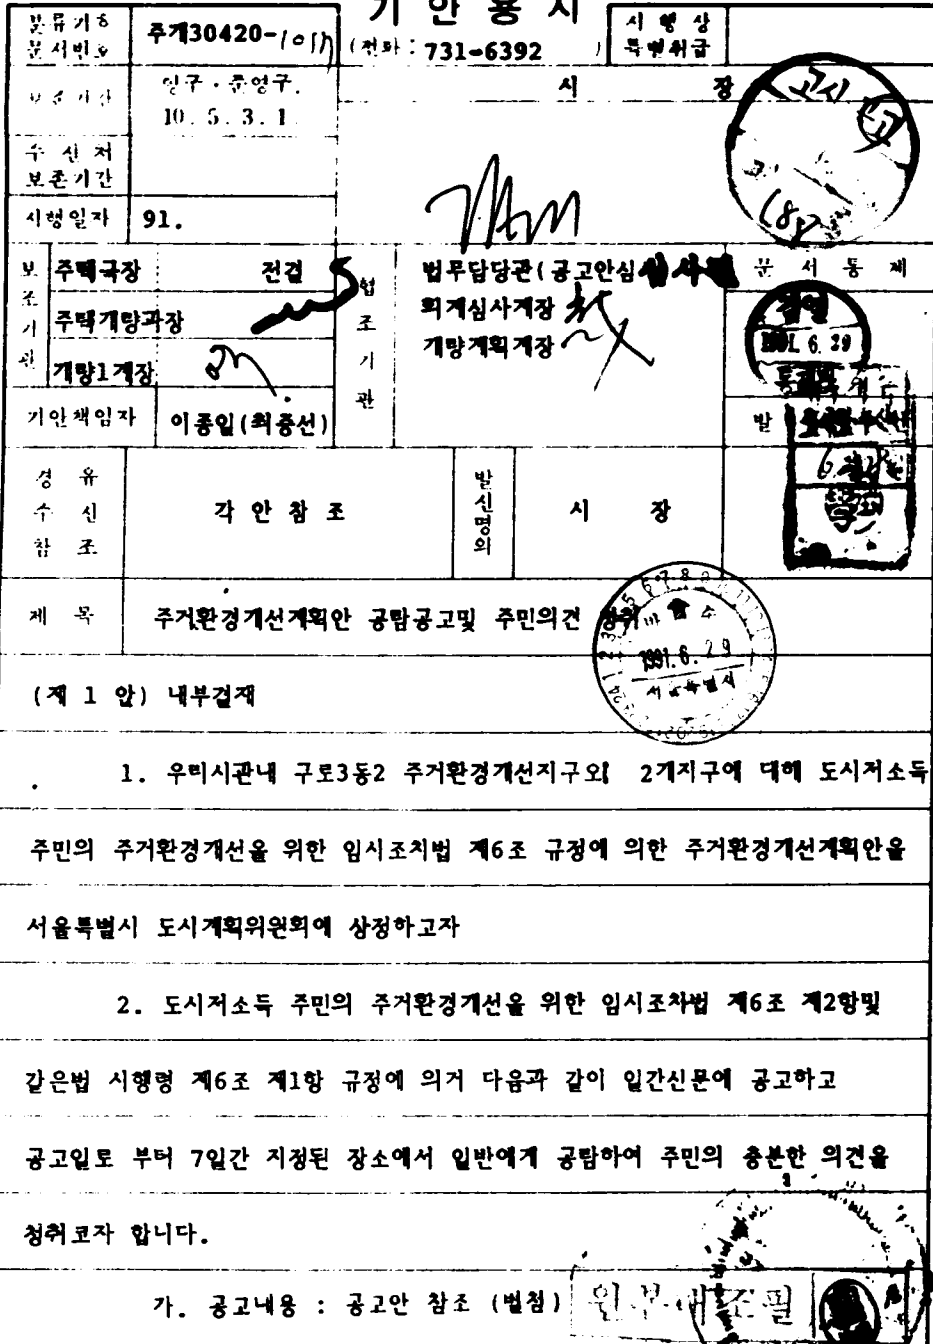 기 안 용 지
분류기호
문서번호
주개30420-
(전화 : 731-6392 )
시 행 상
특별취급
보존기간
영구 · 준영구.
10. 5. 3. 1.
시 장
수 신 처
보존기간
시행일자 91.
보 조 기 관
주택국장 전결
주택개량과장
개량1계장
기안책임자 이종일(최중선)
협 조 기 관
법무담당관(공고안심
회계심사계장
개량계획계장
문 서 통 제
검열
1991. 6. 29
발
경 유
수 신
참 조
각 안 참 조
발신명의
시 장
제 목 주거환경개선계획안 공람공고및 주민의견 청취
1991. 6. 29
서울특별시
(제 1 안) 내부결재
1. 우리시관내 구로3동2 주거환경개선지구외 2개지구에 대해 도시저소득
주민의 주거환경개선을 위한 임시조치법 제6조 규정에 의한 주거환경개선계획안을
서울특별시 도시계획위원회에 상정하고자
2. 도시저소득 주민의 주거환경개선을 위한 임시조치법 제6조 제2항및
같은법 시행령 제6조 제1항 규정에 의거 다음과 같이 일간신문에 공고하고
공고일로 부터 7일간 지정된 장소에서 일반에게 공람하여 주민의 충분한 의견을
청취코자 합니다.
가. 공고내용 : 공고안 참조 (별첨)
원본대조필